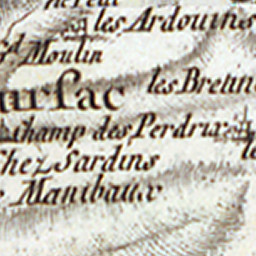 les Ardouins
Gd. Moulin
les Bretin
Champ des Perdrix
Chez Sardins
Manibaux